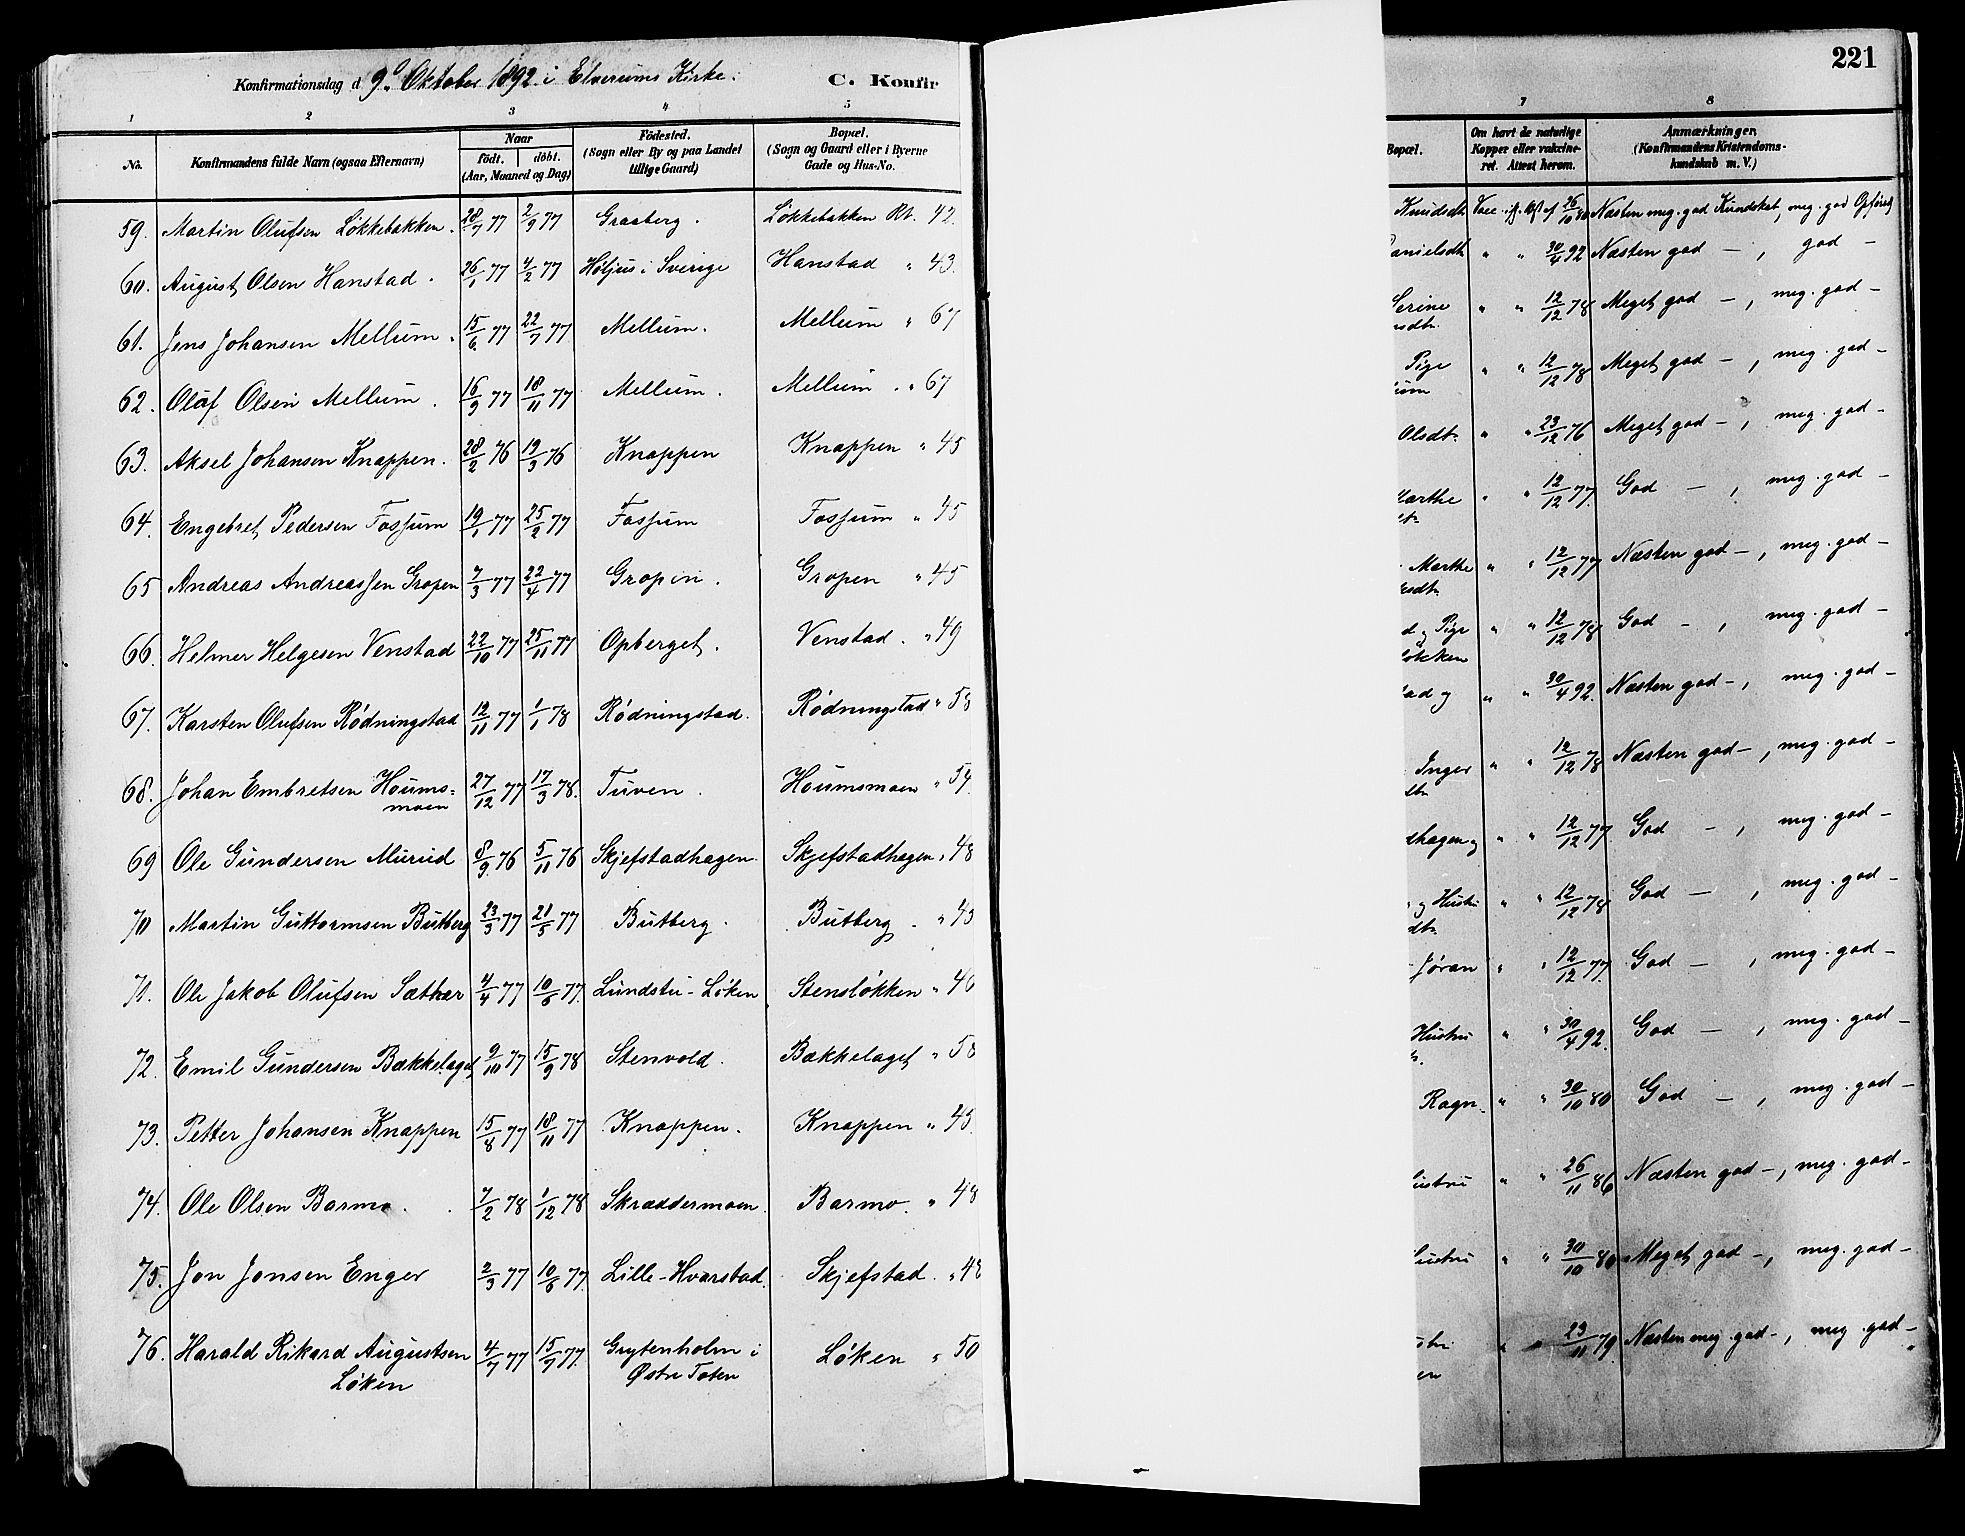 Konfirmationsdag d 9d Oktober 1892 i Elverums Kirke.
C. Konfir
221
1 2 3 4 5
7 8
No.
Konfirmandens fulde Navn (ogsaa Efternavn)
Naar
født. døbt.
(Aar, Maaned og Dag)
Fødested.
(Sogn eller By og paa Landet
tillige Gaard)
Bopæl.
(Sogn og Gaard eller i Byerne
Gade og Hus-No.
Bopæl.
Om havt de naturlige
Kopper eller vaccine-
ret. Attest herom.
Anmærkninger.
(Konfirmandens Kristendoms-
kundskab m. V.)
59. Martin Olufsen Løkkebakken. 28/7 77 2/9 77 Graaberg. Løkkebakken Rt. 42. Knudsdt. Vacc. 26/10 80 Næsten meg. god Kundskab, meg. god Opførsel
60. August Olsen Hanstad. 26/1 77 4/2 77 Höljus i Sverige Hanstad " 43. Danielsdt. " " 30/4 92 Næsten god — , god —
61. Jens Johansen Mellum. 15/6 77 22/7 77 Mellum. Mellum " 67 Serine " " 12/12 78 Meget god — , meg. god —
sdt.
62. Olaf Olsen Mellum. 16/9 77 18/11 77 Mellum. Mellum. " 67 Pige " " 12/12 78 Meget god — , meg. god —
um
63. Aksel Johansen Knappen. 28/2 76 19/3 76 Knappen Knappen " 45 Olsdt. " " 23/12 76 Meget god — , meg. god —
64. Engebret Pedersen Fossum 19/1 77 25/2 77 Fossum Fossum " 45 Marthe " " 12/12 77. God — , meg. god —
65 Andreas Andreassen Gropen 7/3 77 22/4 77 Gropen. Gropen " 45 Marthe " " 12/12 77 Næsten god — , meg. god —
sdt.
66. Helmer Helgesen Venstad 22/10 77 25/11 77 Opberget. Venstad. " 49 d og Pige " " 12/12 78 God — , meg. god —
løkken
67. Karsten Olufsen Rødningstad 12/11 77 1/1 78 Rødningstad. Rødningstad " 53 ad og " " 30/4 92. Næsten god — , meg. god —
68. Johan Embretsen Houms= 27/12 77 17/3 78. Tuven. Houmsmoen " 54. Inger " " 12/12 78 Næsten god — , meg. god —
moen
dt.
69 Ole Gundersen Murud 8/9 76 5/11 76 Skjefstadhagen. Skjefstadhagen " 48 dhagen og " " 12/12 77. God — , meg. god —
70 Martin Guttormsen Butberg 23/3 77 21/5 77 Butberg. Butberg. " 43 og Hustru " " 12/12 78 God — , meg. god —
dt.
71. Ole Jakob Olufsen Sæther 4/4 77 10/6 77. Lundstu-Løken Stensløkken " 46 Jøran " " 12/12 77. God — , meg. god —
72. Emil Gundersen Bækkelaget 9/10 77 15/9 78 Stenvold. Bækkelaget " 58 Hustru " " 30/4 92. God — , meg. god —
73. Petter Johansen Knappen 15/8 77 18/11 77 Knappen. Knappen " 45. Ragn. " " 30/10 80 God — , meg. god —
74. Ole Olsen Barmo. 7/2 78 1/12 78 Skræddermoen. Barmo. " 48 Hustru " " 26/11 86 Næsten god — , meg. god —
75. Jon Jonsen Enger 2/3 77 10/6 77. Lille-Hvarstad. Skjefstad. " 48 Hustru " " 30/10 80 Meget god — , meg. god —
76. Harald Rikard Augustsen 4/7 77 15/7 77. Grytenholm i Løken " 50 " " 23/11 79. Næsten meg. god — , meg. god —
Løken Østre Toten